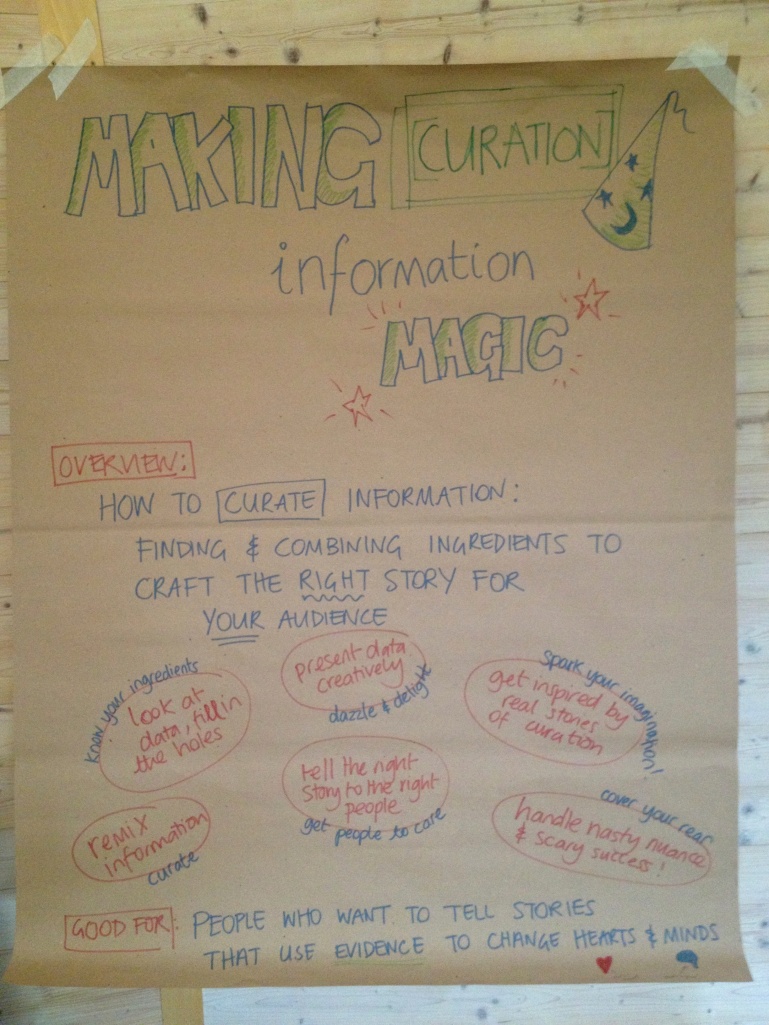 MAKING [CURATION]
information
MAGIC
OVERVIEW:
HOW TO CURATE INFORMATION:
FINDING & COMBINING INGREDIENTS TO
CRAFT THE RIGHT STORY FOR
YOUR AUDIENCE
know your ingredients
look at
data, fill in
the holes
present data
creatively
dazzle & delight
spark your imagination!
get inspired by
real stories
of curation
remix
information
curate
tell the right
story to the right
people
get people to care
cover your rear
handle nasty nuance
& scary success!
GOOD FOR: PEOPLE WHO WANT TO TELL STORIES
THAT USE EVIDENCE TO CHANGE HEARTS & MINDS